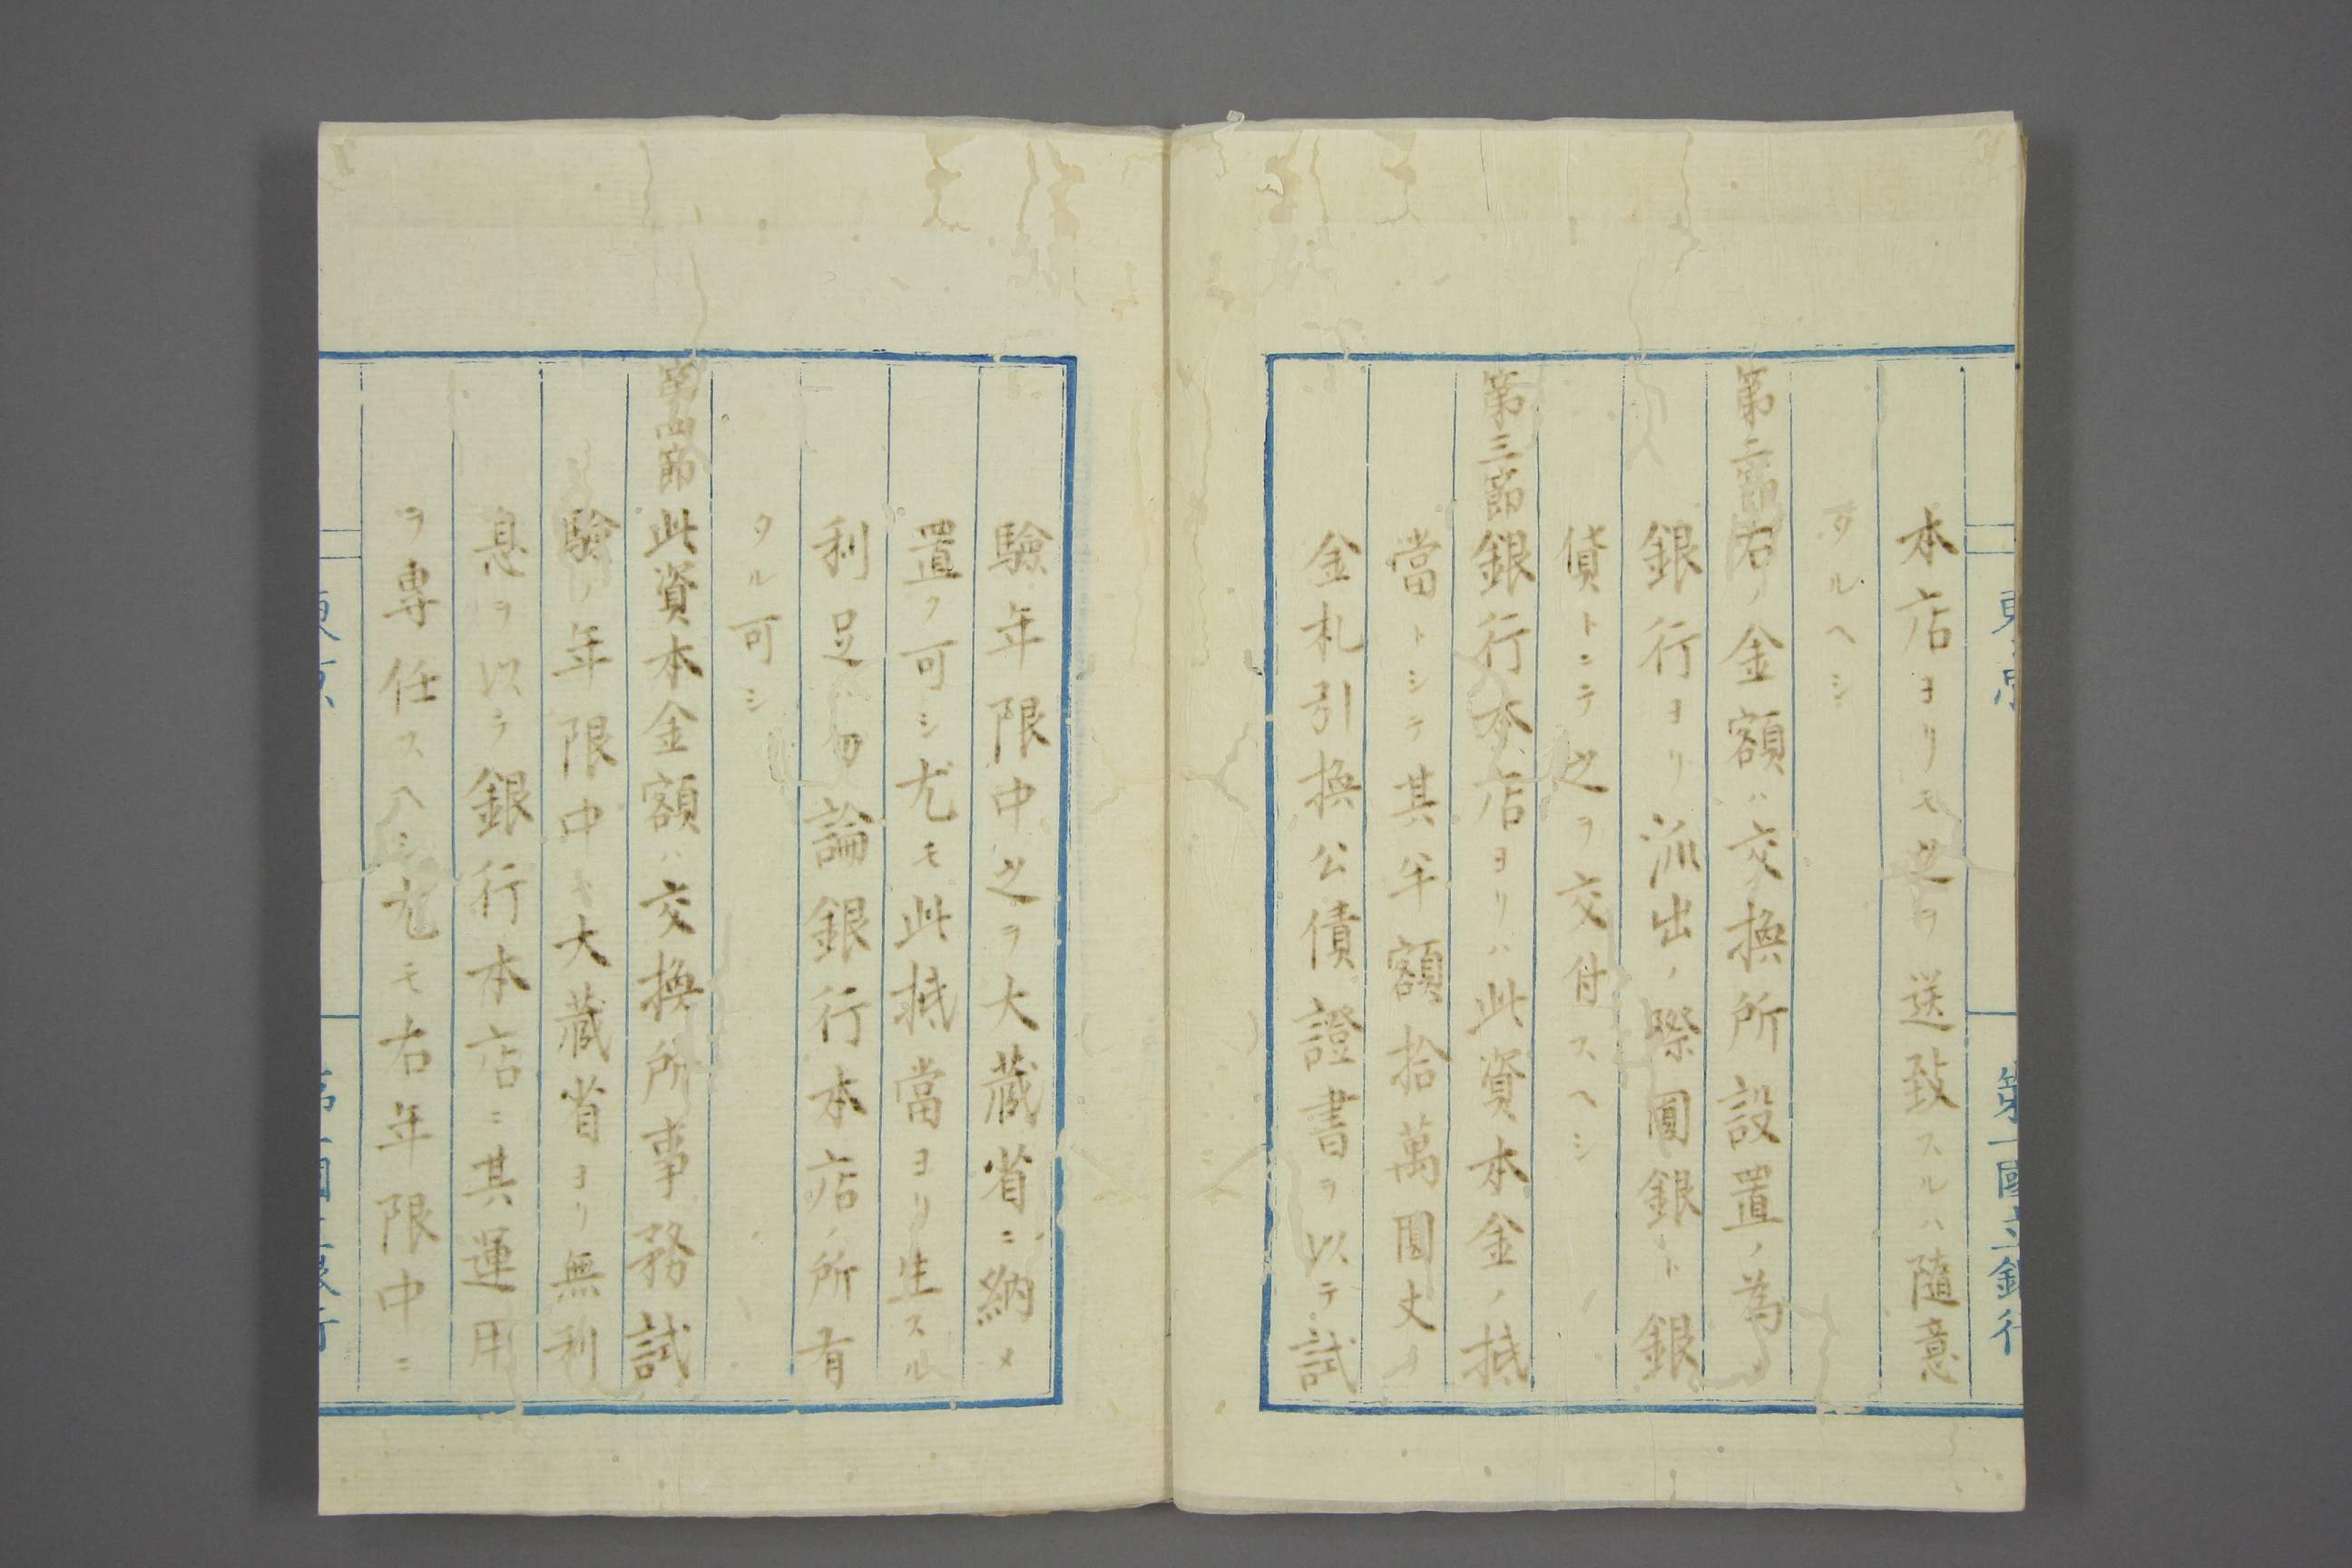 東京 第一國立銀行
本店ヨリモ之ヲ送致スルハ隨意
タルヘシ
第二節右ノ金額ハ交換所設置ノ為メ
銀行ヨリ派出ノ際圓銀ト銀
貨トシテ之ヲ交付スヘシ
第三節銀行本店ヨリハ此資本金ノ抵
當トシテ其半額拾萬圓丈ヲ
金札引換公債證書ヲ以テ試
驗年限中之ヲ大蔵省ニ納メ
置ク可シ尤モ此抵當ヨリ生スル
利足ハ勿論銀行本店ノ所有
タル可シ
第四節此資本金額ハ交換所事務試
驗ノ年限中ハ大蔵省ヨリ無利
息ヲ以テ銀行本店ニ其運用
ヲ専任スヘシ尤モ右年限中ニ
東京 第一國立銀行